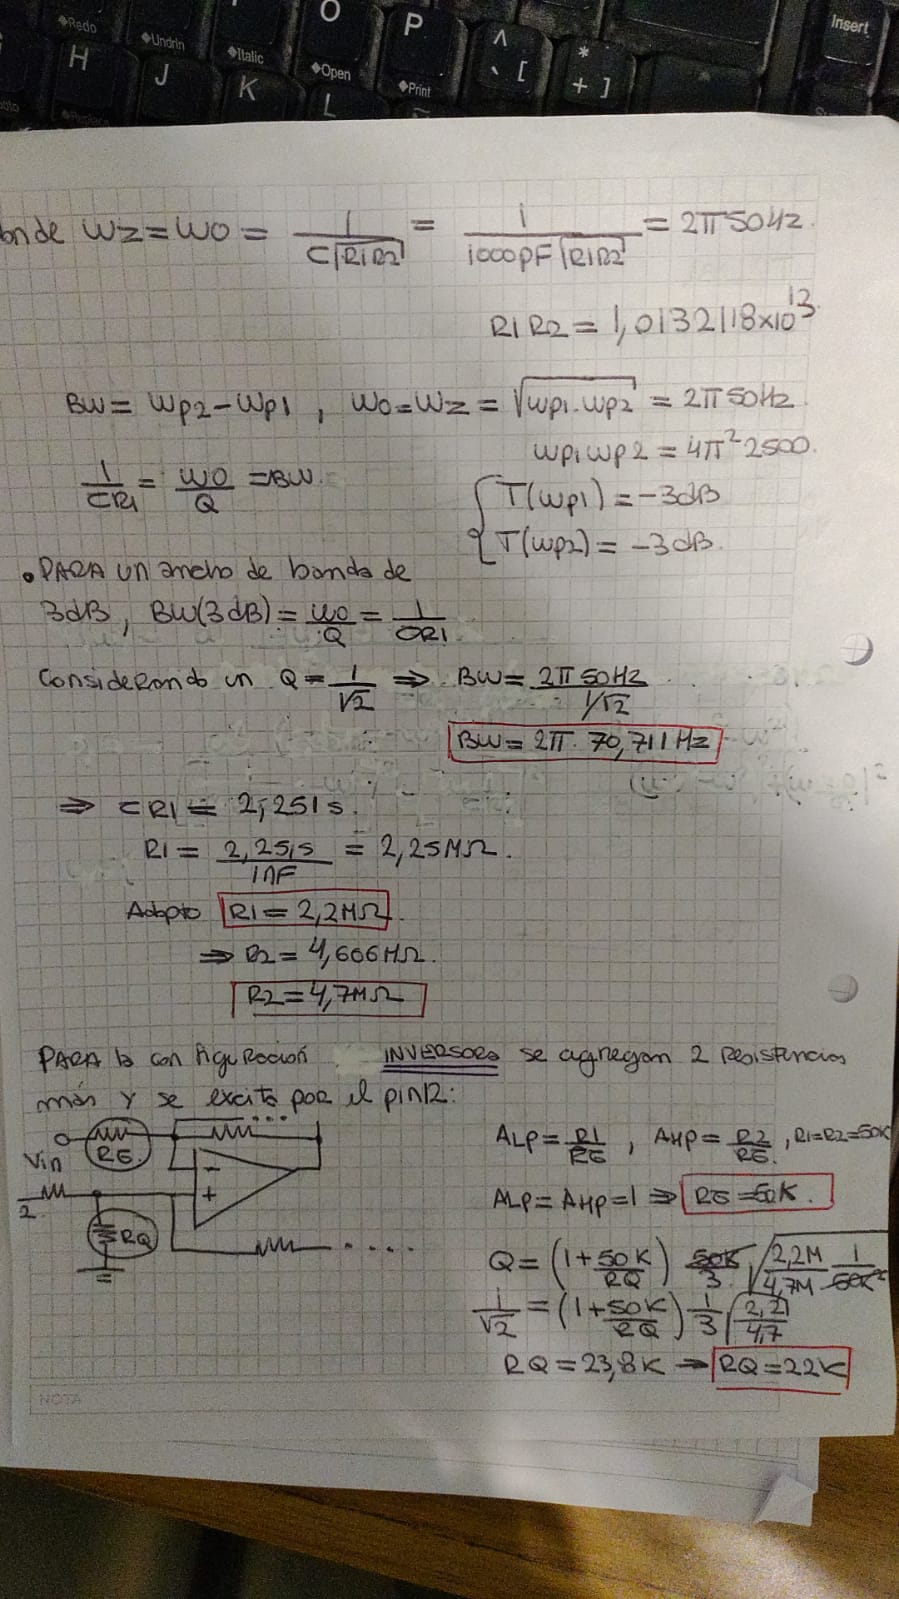 Redo
Undrln
Italic
O
Open
P
Print
Insert
H
J
K
L
^
` [
*
+ ]
onde WZ = WO = 1 / C√R1R2 = 1 / 1000pF√R1R2 = 2π50Hz.
R1R2 = 1,0132118x10^13
BW = WP2-WP1 , WO=WZ = √WP1.WP2 = 2π50Hz
WP1WP2 = 4π²2500.
1/CR1 = WO/Q = BW.
{ T(WP1) = -3dB
T(WP2) = -3dB.
• PARA un ancho de banda de
3dB, BW(3dB) = WO/Q = 1/CR1
Considerando un Q = 1/√2 ⇒ BW = 2π50Hz / 1/√2
BW = 2π. 70,711Hz
⇒ CR1 = 2,251s.
R1 = 2,251s / 1nF = 2,25MΩ.
Adopto R1 = 2,2MΩ.
⇒ R2 = 4,606MΩ.
R2 = 4,7MΩ
PARA la configuración INVERSORA se agregan 2 resistencias
más y se excita por el pin12:
Vin
RG
-
+
2
RQ
ALP = R1/RG , AHP = R2/RG , R1=R2=50K
ALP = AHP = 1 ⇒ RG = 50K.
Q = (1+50K/RQ) 50K/3 . √2,2M/4,7M 1/50K²
1/√2 = (1+50K/RQ) 1/3 √2,2/4,7
RQ = 23,8K → RQ = 22K
NOTA